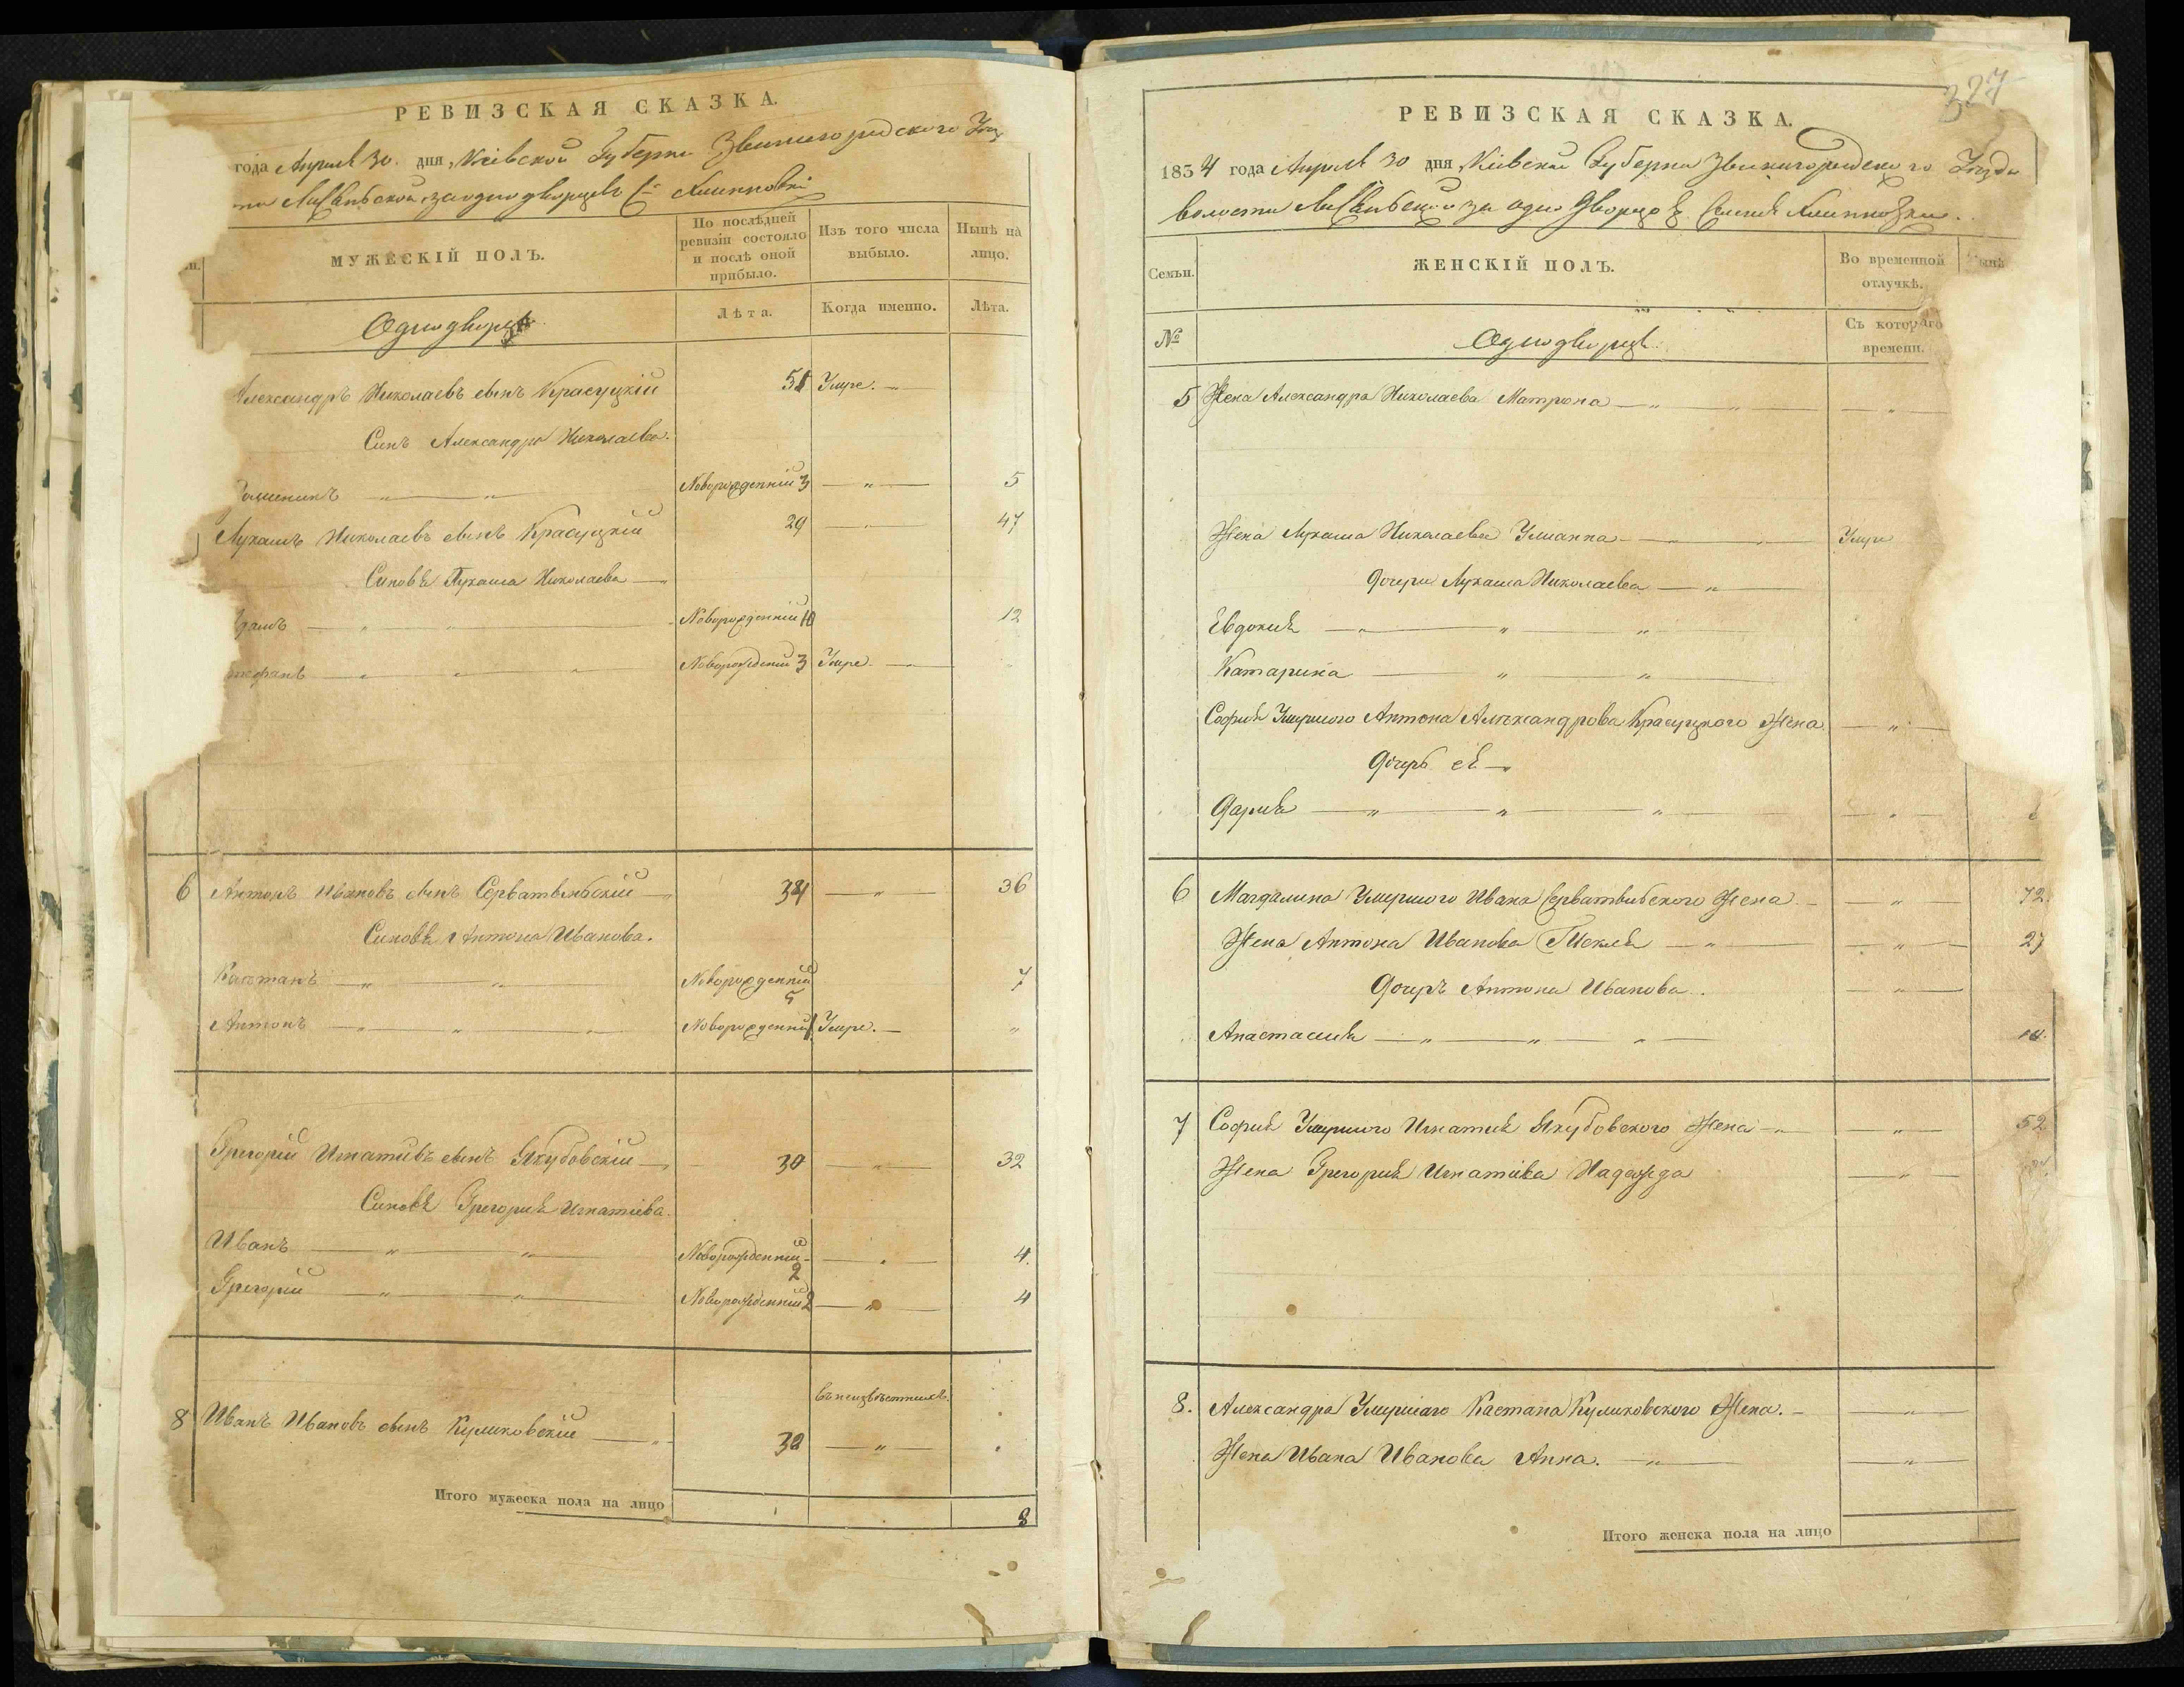 РЕВИЗСКАЯ СКАЗКА.
года Апреля 30. дня, Кіевской Губерни Звенигородского
заоднодворцевъ
МУЖЕСКІЙ ПОЛЪ.
По послѣдней ревизіи состояло и послѣ оной прибыло.
Изъ того числа выбыло.
Нынѣ на лицо.
Лѣта.
Когда именно.
Лѣта.
Однодворцы
Александръ Николаевъ сынъ Красуцкій 51 Умре.
Синъ Александра Николаева.
Новорожденній 3 — " — 5
Лукашъ Николаевъ сынъ Красуцкій 29 — " — 47
Синовя Лукаша Николаева
Новорожденній 10 12
Новорожденній 3 Умре.
6 Антонъ Ивановъ сынъ Серватвинскій 34 — " — 36
Синовя Антона Иванова.
Каетанъ Новорожденній 5 7
Антонъ Новорожденній 1 Умре. "
Грегорій Игнатиевъ сынъ Якубовскій 30 — " — 32
Синовя Грегория Игнатіева.
Иванъ Новорожденній 2 — " — 4.
Грегорій Новорожденній 2 — " — 4
въ неизвѣстныхъ.
8 Иванъ Ивановъ сынъ Куликовскій — " — 32 — " —
Итого мужеска пола на лицо 8
327
РЕВИЗСКАЯ СКАЗКА.
1854 года Апреля 30 дня, Кіевской Губерни Звенигородского Уезда
волости за одно Дворцов
Семьи.
ЖЕНСКІЙ ПОЛЪ.
Во временной отлучкѣ.
№
Однодворцы
Съ котораго времени.
5 Жена Александра Николаева Матрона — " — " — — " —
Жена Лукаша Николаева Улианна — " — Умре
Дочери Лукаша Николаева — " —
Евдокия — " — " — " —
Катарина — " — " —
София Умершого Антона Александрова Красуцкого Жена. — " —
Дочерь еѣ — "
Дария — " — " — " — — " —
6 Магдалина Умершого Ивана Серватвинского Жена. — — " — 72.
Жена Антона Иванова Текля — " — — " — 27
Дочерь Антона Иванова. — " —
Анастасия — " — " — " —
7 София Умершого Игнатия Якубовского Жена — " — " — 52
Жена Грегория Игнатіева Надежда — " —
8. Александра Умершаго Каетана Куликовского Жена. — — " —
Жена Ивана Иванова Анна. — " — — " —
Итого женска пола на лицо